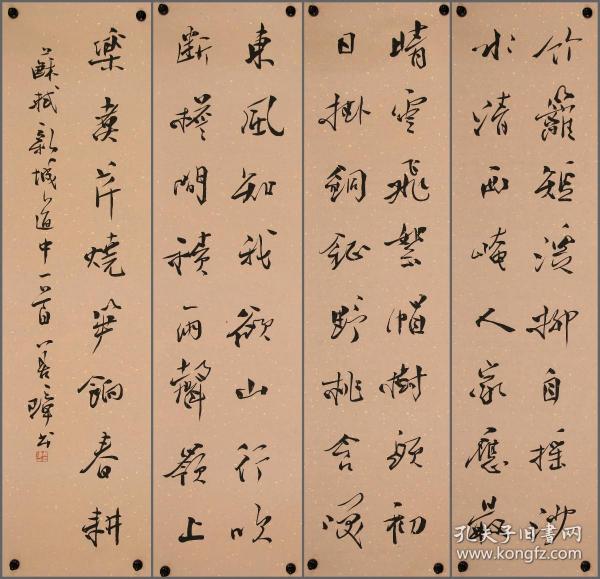 竹籬短溪柳自摇沙
水清西崦人家應最
晴雲飛絮帽樹頭初
日掛銅鉦野桃含笑
東風知我欲山行吹
斷檐間積雨聲嶺上
樂煮芹燒笋餉春耕
蘇軾新城道中一首 善璋书
孔夫子旧书网
www.kongfz.com